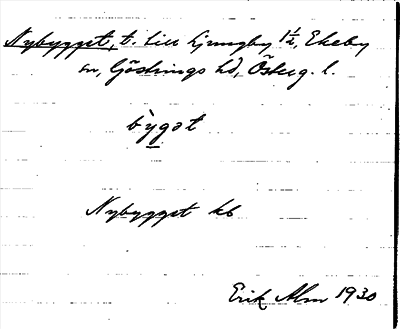 Nybygget, t. till Ljungby 1½, Ekeby
sn, Göstrings hd, Österg. l.
bỳgət
Nybygget kb
Erik Alm 1930